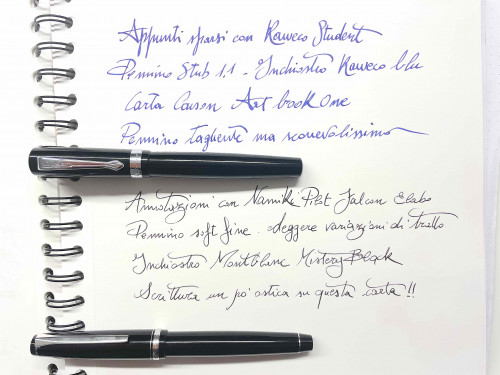 Appunti sparsi con Kaweco Student
Pennino Stub 1.1 - Inchiostro Kaweco blu
Carta Canson Art book One
Pennino tagliente ma scorrevolissimo
Annotazioni con Namiki Pilot Falcon Elabo
Pennino soft fine. Leggere variazioni di tratto
Inchiostro Montblanc Mistery Black
Scrittura un po' ostica su questa carta!!